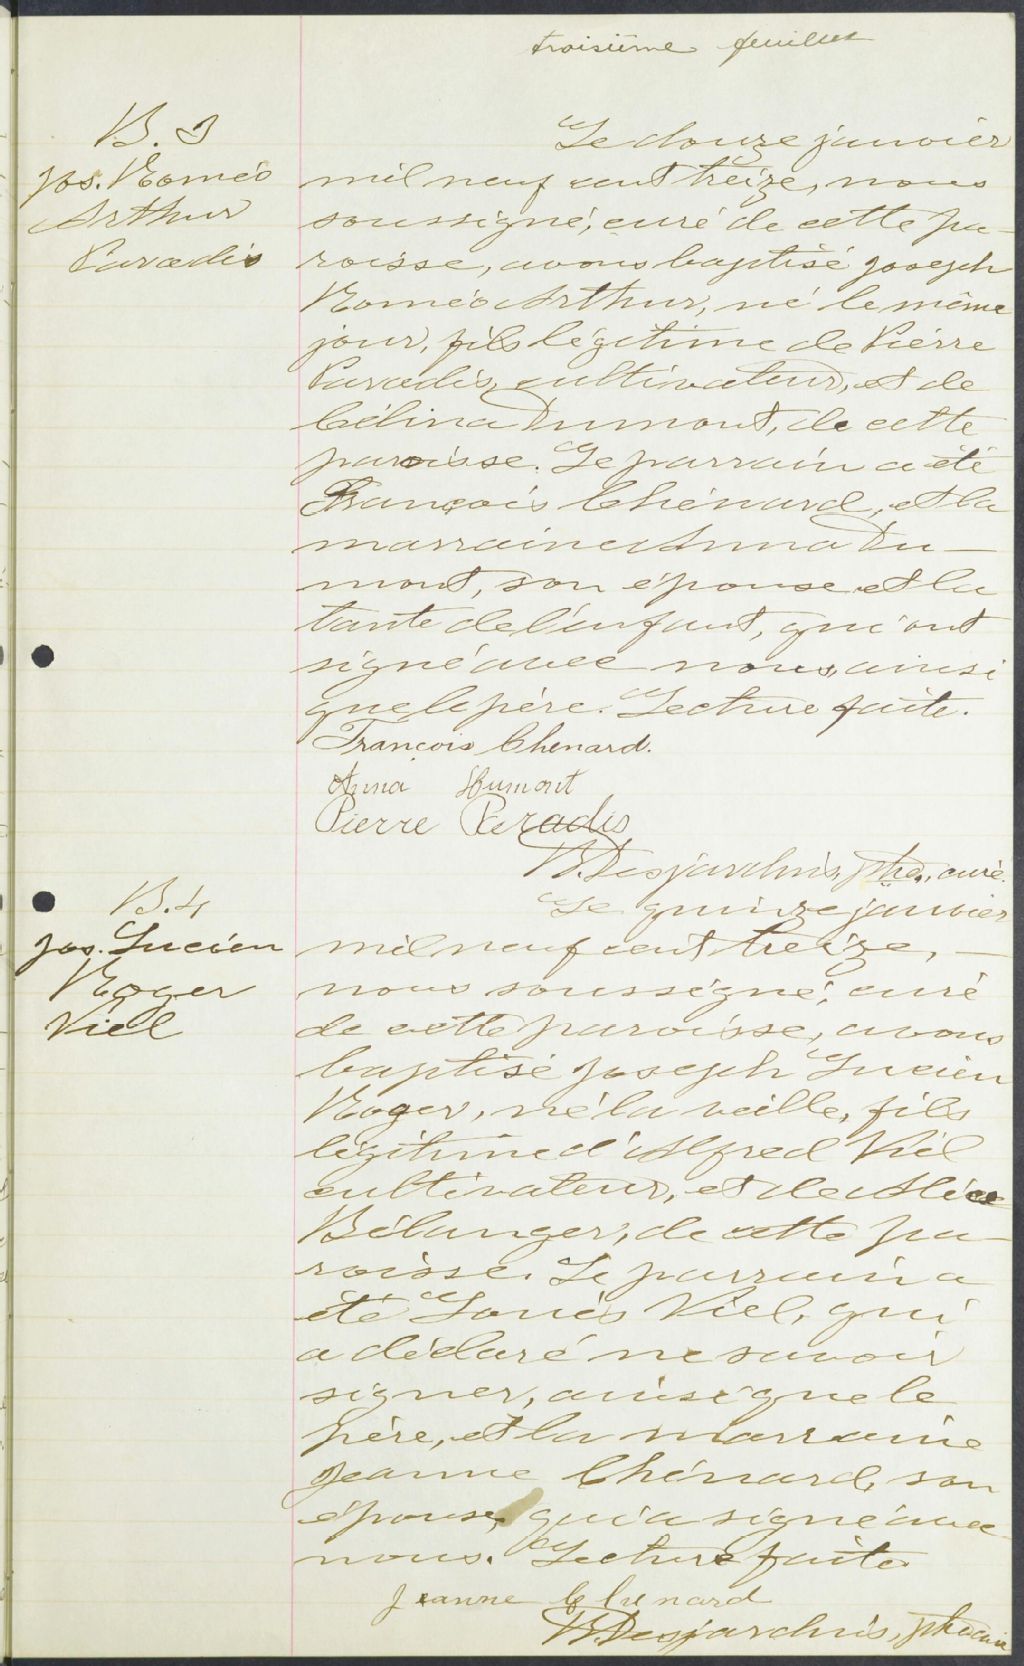 troisième feuillet
B. 3
Jos. Roméo
Arthur
Paradis
Le douze janvier
mil neuf cent treize, nous
soussigné, curé de cette pa-
roisse, avons baptisé Joseph
Roméo Arthur, né le même
jour, fils légitime de Pierre
Paradis, cultivateur, et de
Célina Dumont, de cette
paroisse. Le parrain a été
François Chénard, et la
marraine Anna Du-
mont, son épouse et la
tante de l'enfant, qui ont
signé avec nous, ainsi
que le père. Lecture faite.
François Chenard.
Anna Dumont
Pierre Paradis
Desjardins, ptre, curé.
B. 4
Jos. Lucien
Roger
Viel
Le quinze janvier
mil neuf cent treize, -
nous soussigné, curé
de cette paroisse, avons
baptisé Joseph Lucien
Roger, né la veille, fils
légitime d'Alfred Viel
cultivateur, et de Alice
Bélanger, de cette pa-
roisse. Le parrain a
été Louis Viel, qui
a déclaré ne savoir
signer, ainsi que le
père, et la marraine
Jeanne Chénard, son
épouse, qui a signé avec
nous. Lecture faite.
Jeanne Chenard
Desjardins, ptre curé